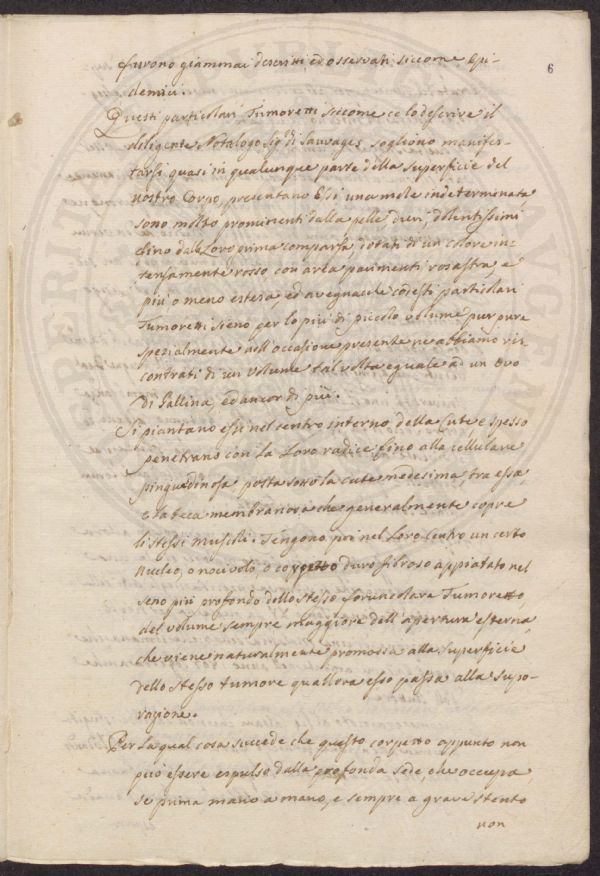 6
furono giammai descritti ed osservati siccome Epi-
demici.
Questi particolari Tumoretti siccome ce lo descrive il
diligente Notalogo Sig. di Sauvages, sogliono manifes-
tarsi quasi in qualunque parte della superficie del
nostro Corpo, presentano Essi una mole indeterminata,
sono molto prominenti dalla pelle, duri, dolentissimi
fino dalla Loro prima comparsa, dotati di un colore in-
tensamente rosso con area parimenti rosastra, e
più o meno estesa, ed avegnacche codesti particolari
Tumoretti sieno per lo più di piccolo volume, pur pure
spezialmente nell'occasione presente ne abbiamo ris-
contrati di un volume tal volta eguale ad un ovo
di Gallina, ed ancor di più.
Si piantano essi nel centro interno della Cute e spesso
penetrano con la Loro radice fino alla cellulare
pinguedinosa posta sotto la cute medesima tra essa,
e la teca membranosa che generalmente copre
li stessi Muscoli. Tengono poi nel Loro Centro un certo
Nucleo, o nociuolo, o corpetto duro fibroso appiatato nel
seno più profondo dello stesso foruncolare Tumoretto,
del volume sempre maggiore dell'apertura esterna,
che viene naturalmente promossa alla superficie
dello stesso tumore quallora esso passa alla supo-
razione.
Per la qual cosa succede che questo corpetto appunto non
può essere espulso dalla profonda sede, che occupa,
se prima mano a mano, e sempre a grave stento
non